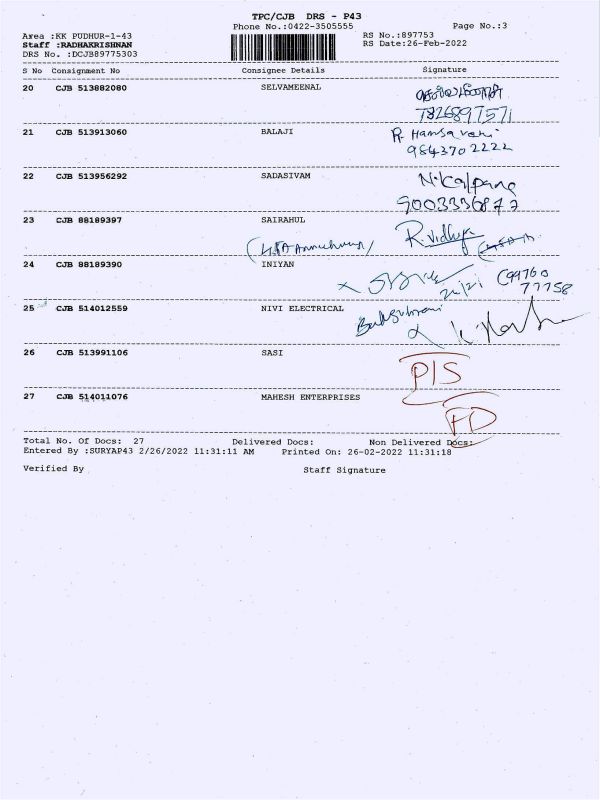 TPC/CJB DRS - P43
Phone No.:0422-3505555
Page No.:3
Area :KK PUDHUR-1-43
RS No.:897753
Staff :RADHAKRISHNAN
RS Date:26-Feb-2022
DRS No. :DCJB89775303
S No Consignment No Consignee Details Signature
20 CJB 513882080 SELVAMEENAL
7826897571
21 CJB 513913060 BALAJI R. Hamsaveni
9843702222
22 CJB 513956292 SADASIVAM N. Kalpana
9003336877
23 CJB 88189397 SAIRAHUL R. Vidhya
24 CJB 88189390 INIYAN
99760
77758
25 CJB 514012559 NIVI ELECTRICAL
26 CJB 513991106 SASI P/S
27 CJB 514011076 MAHESH ENTERPRISES FD
Total No. Of Docs: 27 Delivered Docs: Non Delivered Docs:
Entered By :SURYAP43 2/26/2022 11:31:11 AM Printed On: 26-02-2022 11:31:18
Verified By Staff Signature